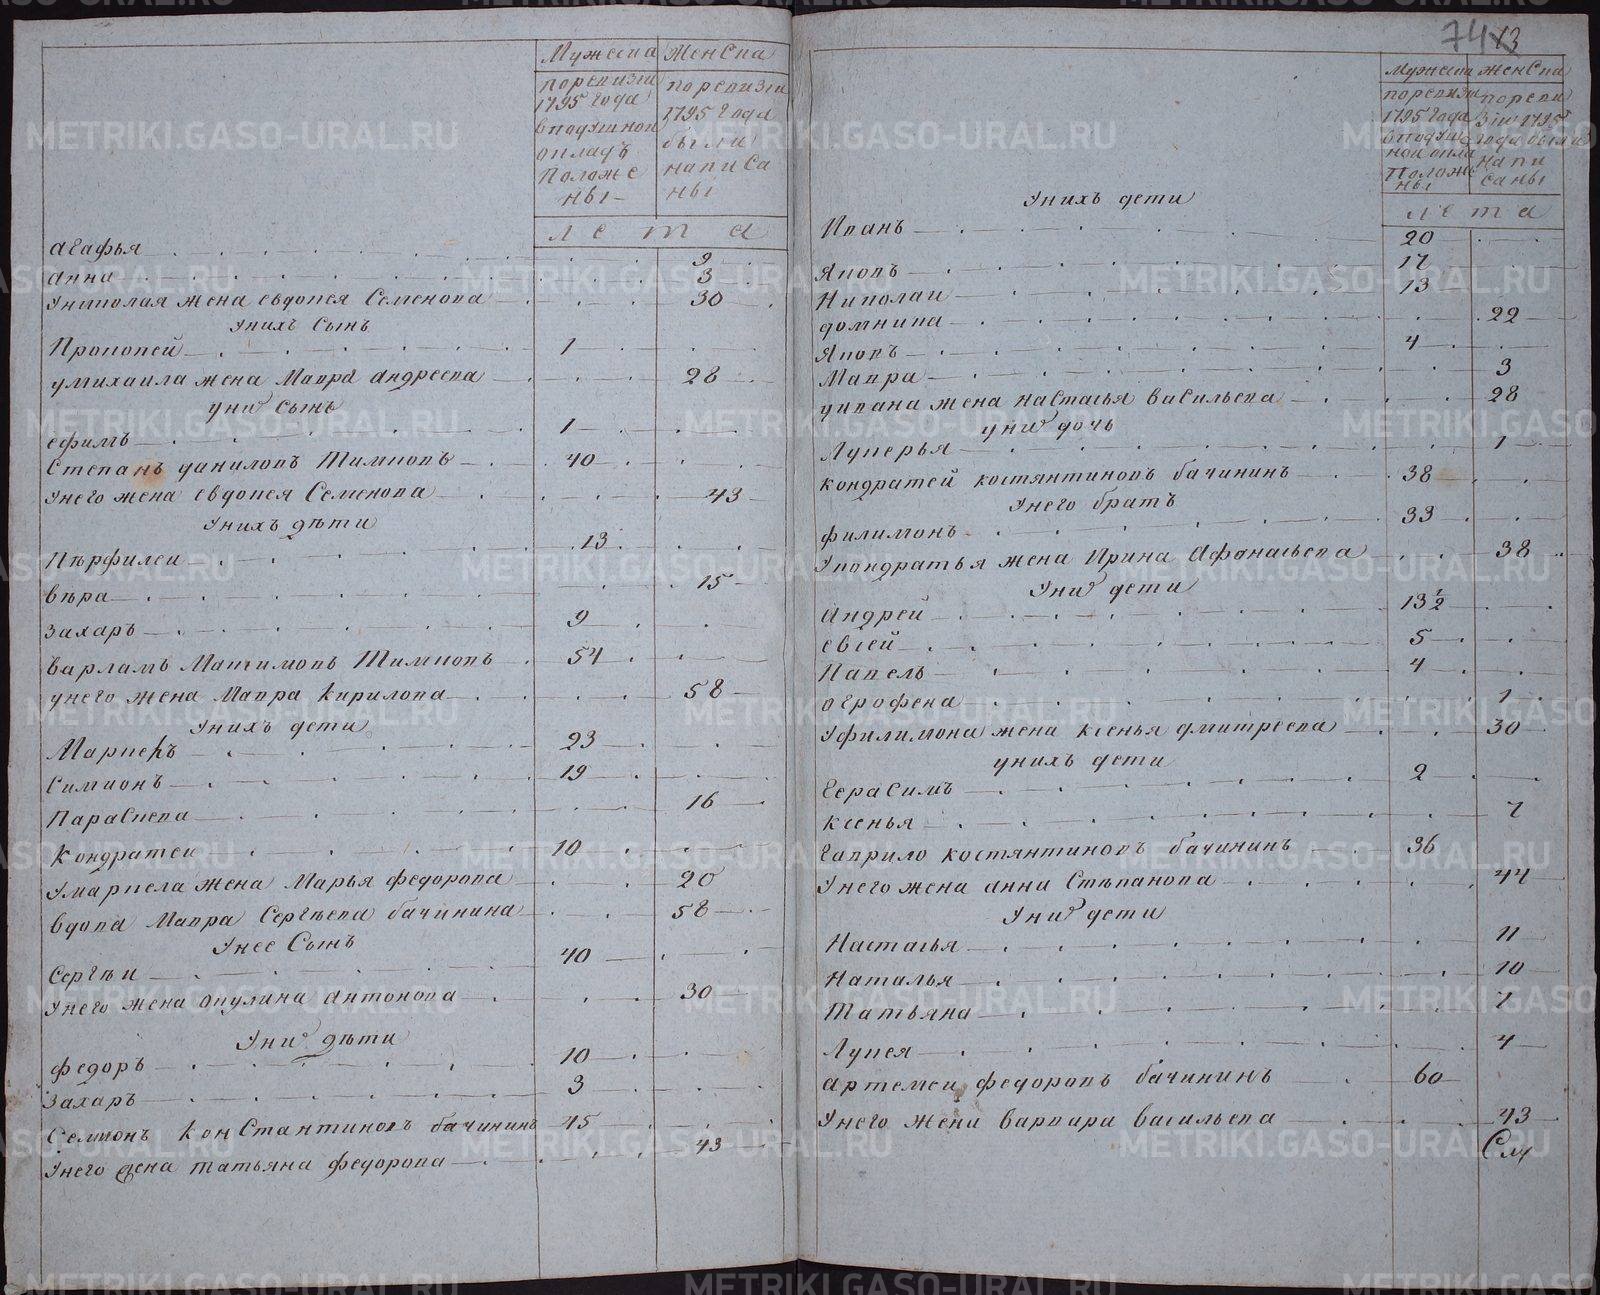 Мужеска Женска
по ревизiи 1795 года в подушной окладъ Положены
по ревизiи 1795 года были написаны
лета
агафья 9
анна 3
Униколая жена евдокея Семенова 30
Унихъ Сынъ
Прокопей 1
умихаила жена Мавра андреева 28
уних сынъ
ефимъ 1
Степанъ даниловъ Тимковъ 40
Унего жена евдокея Семенова 43
Унихъ дѣти
Пѣрфилеи 13
вѣра 15
Захаръ 9
Варламъ Максимовъ Тимковъ 54
унего жена Мавра кирилова 58
Унихъ дети
Маркелъ 23
Симионъ 19
Параскева 16
Кондратеи 10
Умаркела жена Марья федорова 20
вдова Мавра Сергѣева бачинина 58
Унее Сынъ
Сергѣи 40
Унего жена акулина антонова 30
Уних дѣти
федоръ 10
Захаръ 3
Семионъ КонСтантиновъ бачининъ 45
Унего жена татьяна федорова 43
74 13
Мужеска Женска
по ревизiи 1795 года в подушной окла Положены
по ревизiи 1795 года были написаны
лета
Унихъ дети
Иванъ 20
Яковъ 17
Николаи 13
домнина 22
Яковъ 4
Мавра 3
уивана жена настасья васильева 28
уних дочь
Лукерья 1
кондратей костянтиновъ бачининъ 38
Унего братъ
филимонъ 33
Укондратья жена Ирина Афонасьева 38
Уних дети
Андрей 13½
евсей 5
Павелъ 4
огрофена 1
Уфилимона жена ксенья дмитреева 30
унихъ дети
Герасимъ 2
ксенья 7
Гаврило костянтиновъ бачининъ 36
Унего жена анна Стѣпанова 44
Уних дети
Настасья 11
Наталья 10
Татьяна 7
Лукея 4
артемеи федоровъ бачининъ 60
Унего жена варвара васильева 43
METRIKI.GASO-URAL.RU